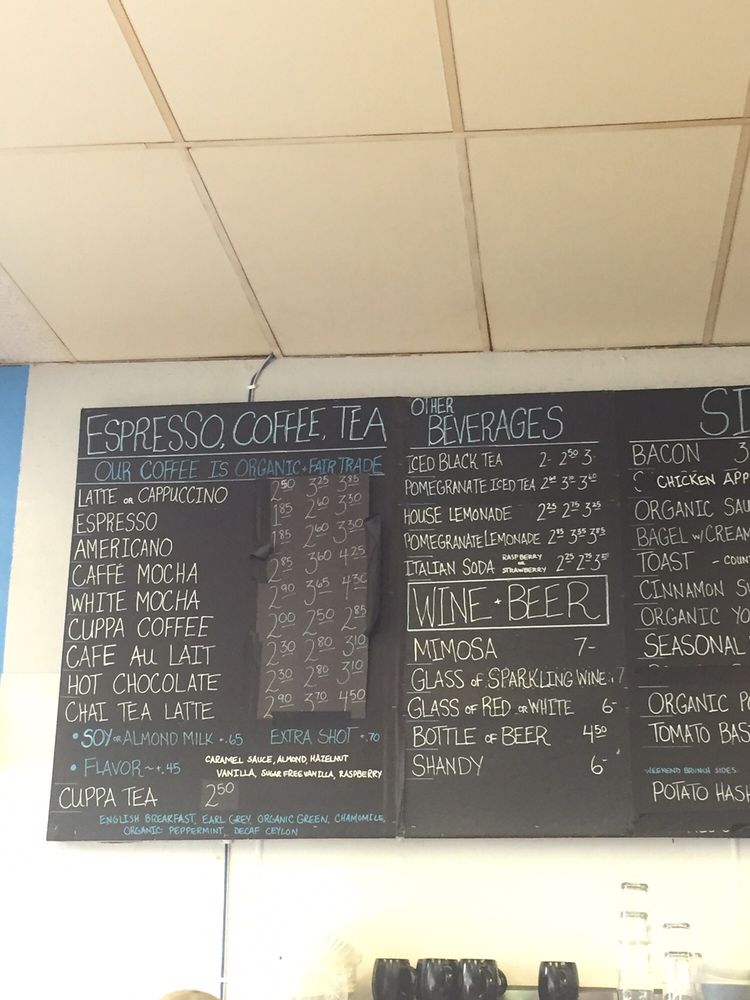 ESPRESSO, COFFEE, TEA
OUR COFFEE IS ORGANIC + FAIR TRADE
LATTE OR CAPPUCCINO 2.50 3.25 3.85
ESPRESSO 1.85 2.60 3.30
AMERICANO 1.85 2.60 3.30
CAFFÉ MOCHA 2.85 3.60 4.25
WHITE MOCHA 2.90 3.65 4.30
CUPPA COFFEE 2.00 2.50 2.85
CAFE AU LAIT 2.30 2.80 3.10
HOT CHOCOLATE 2.30 2.80 3.10
CHAI TEA LATTE 2.90 3.70 4.50
• SOY OR ALMOND MILK +.65 EXTRA SHOT +.70
• FLAVOR ~ +.45 CARAMEL SAUCE, ALMOND, HAZELNUT
VANILLA, SUGAR FREE VANILLA, RASPBERRY
CUPPA TEA 2.50
ENGLISH BREAKFAST, EARL GREY, ORGANIC GREEN, CHAMOMILE,
ORGANIC PEPPERMINT, DECAF CEYLON
OTHER
BEVERAGES
ICED BLACK TEA 2- 2.50 3-
POMEGRANATE ICED TEA
HOUSE LEMONADE 2.25 2.75 3.25
POMEGRANATE LEMONADE 2.85 3.35 3.85
ITALIAN SODA RASPBERRY OR STRAWBERRY 2.25 2.75
WINE + BEER
MIMOSA 7-
GLASS OF SPARKLING WINE 7
GLASS OF RED OR WHITE 6-
BOTTLE OF BEER 4.50
SHANDY 6-
SI
BACON 3
CHICKEN APP
ORGANIC SAU
BAGEL W/CREAM
TOAST - COUN
CINNAMON S
ORGANIC YO
SEASONAL
ORGANIC PO
TOMATO BAS
WEEKEND BRUNCH SIDES:
POTATO HASH